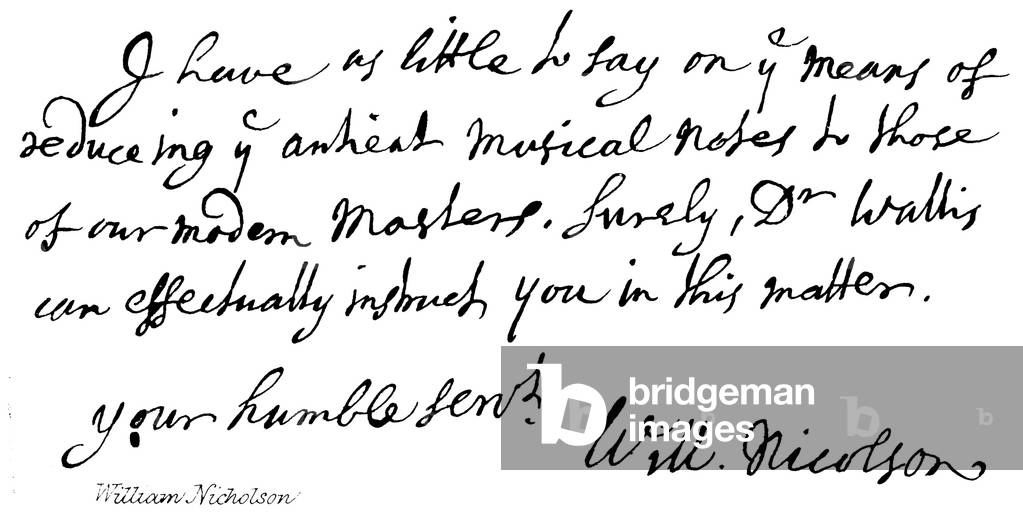 I have as little to say on yᵉ means of
reduceing yᵉ antient Musical Notes to those
of our modern Masters. Surely, Dʳ Wallis
can effectually instruct you in this matter.
your humble servᵗ.
Wm. Nicolson
William Nicholson
bridgeman
images
b
b
b
b